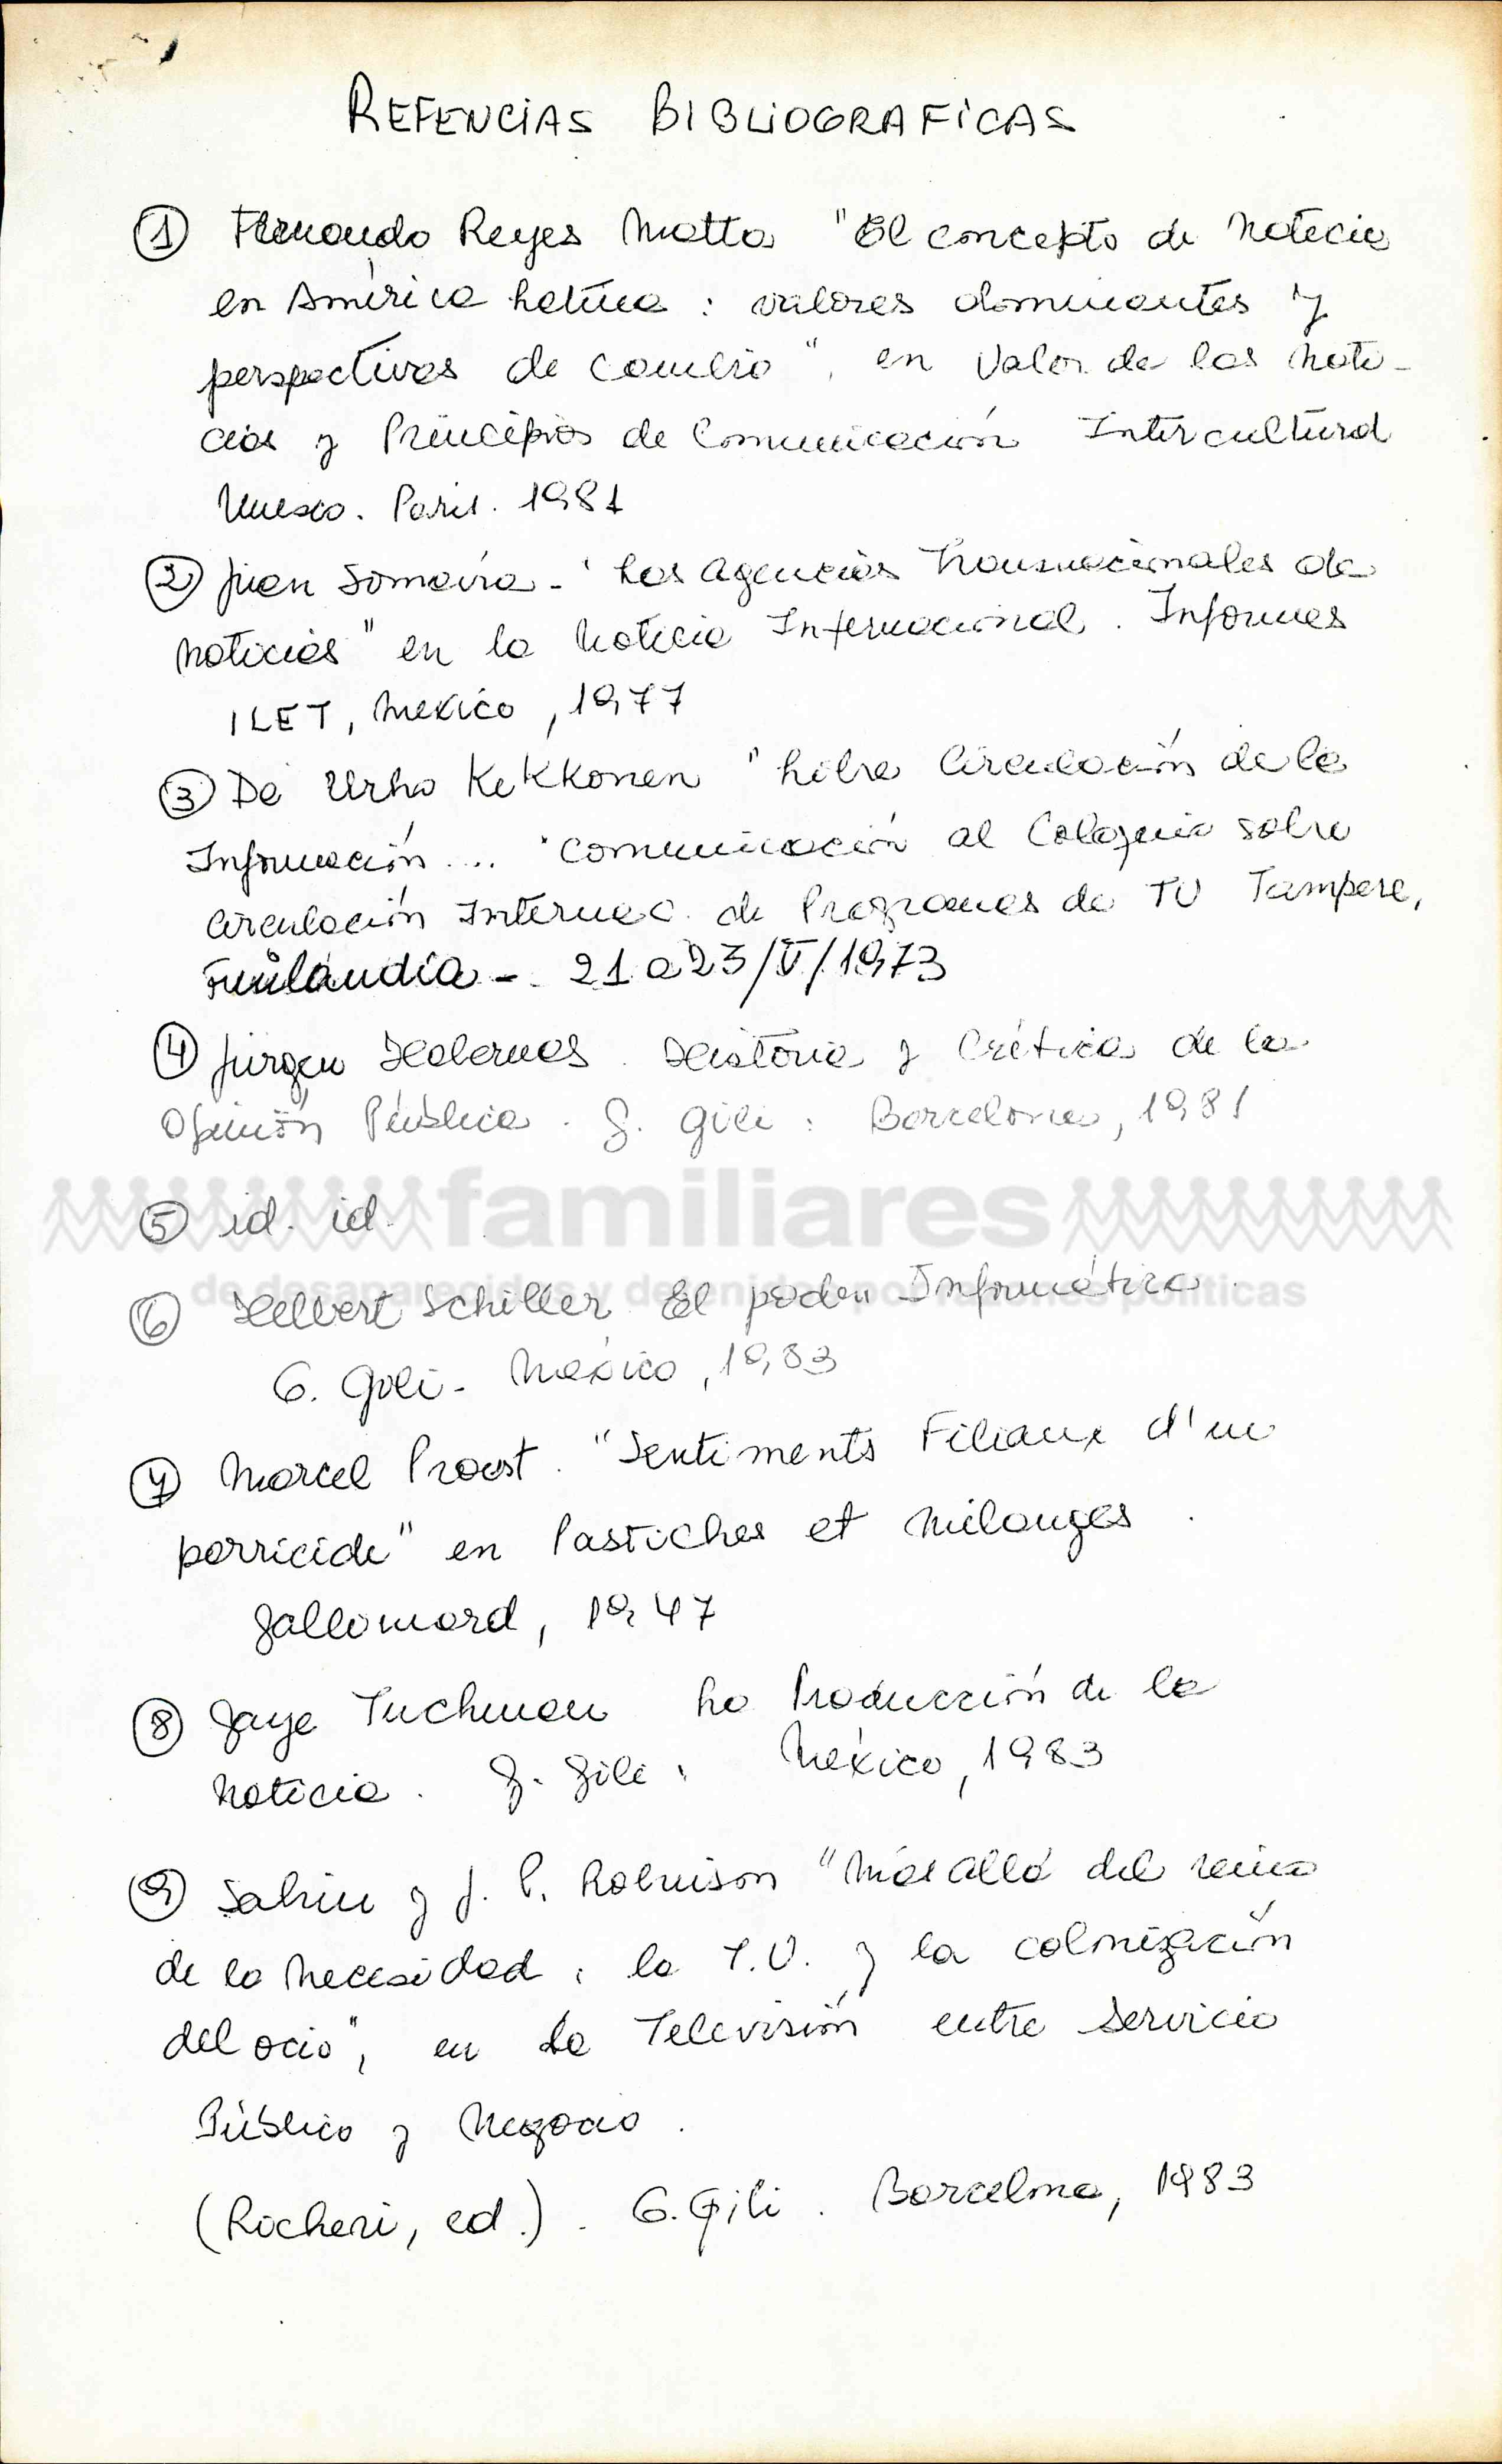 REFENCIAS BIBLIOGRAFICAS
① Fernando Reyes Matta "El concepto de Noticia
en América Latina : valores dominantes y
perspectivas de cambio", en Valor de las Noti-
cias y Principios de Comunicación Intercultural
Unesco. Paris. 1981
② Juan Somavía - "Las Agencias Transnacionales de
Noticias" en la Noticia Internacional. Informes
ILET, Mexico, 1977
③ De Urho Kekkonen "Libre Circulación de la
Información ... " Comunicación al Coloquio sobre
Circulación Internac. de Programas de TV Tampere,
Finlandia - 21 a 23/V/1973
④ Jürgen Habermas. Historia y Crítica de la
Opinión Pública. G. Gili : Barcelona, 1981
familiares
⑤ id. id.
de desaparecidos y detenidos por razones políticas
⑥ Herbert Schiller El poder Informático.
G. Gili - Mexico, 1983
⑦ Marcel Proust. "Sentiments Filiaux d'un
parricide" en Pastiches et Mélanges.
Gallimard, 1947
⑧ Gaye Tuchman La Producción de la
Noticia. G. Gili, México, 1983
⑨ Sahin y J. P. Robinson "Más allá del reino
de la Necesidad, la T.V. y la colonización
del ocio", en La Televisión entre Servicio
Público y Negocio.
(Richeri, ed.). G. Gili. Barcelona, 1983